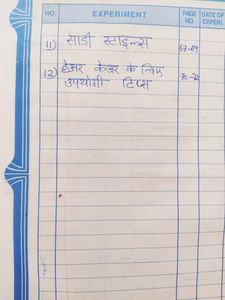 NO. EXPERIMENT PAGE NO. DATE OF EXPERI.
11) साडी स्टाइल्स 67-69
12) हेअर केअर के लिए 70-72
उपयोगी टिप्स